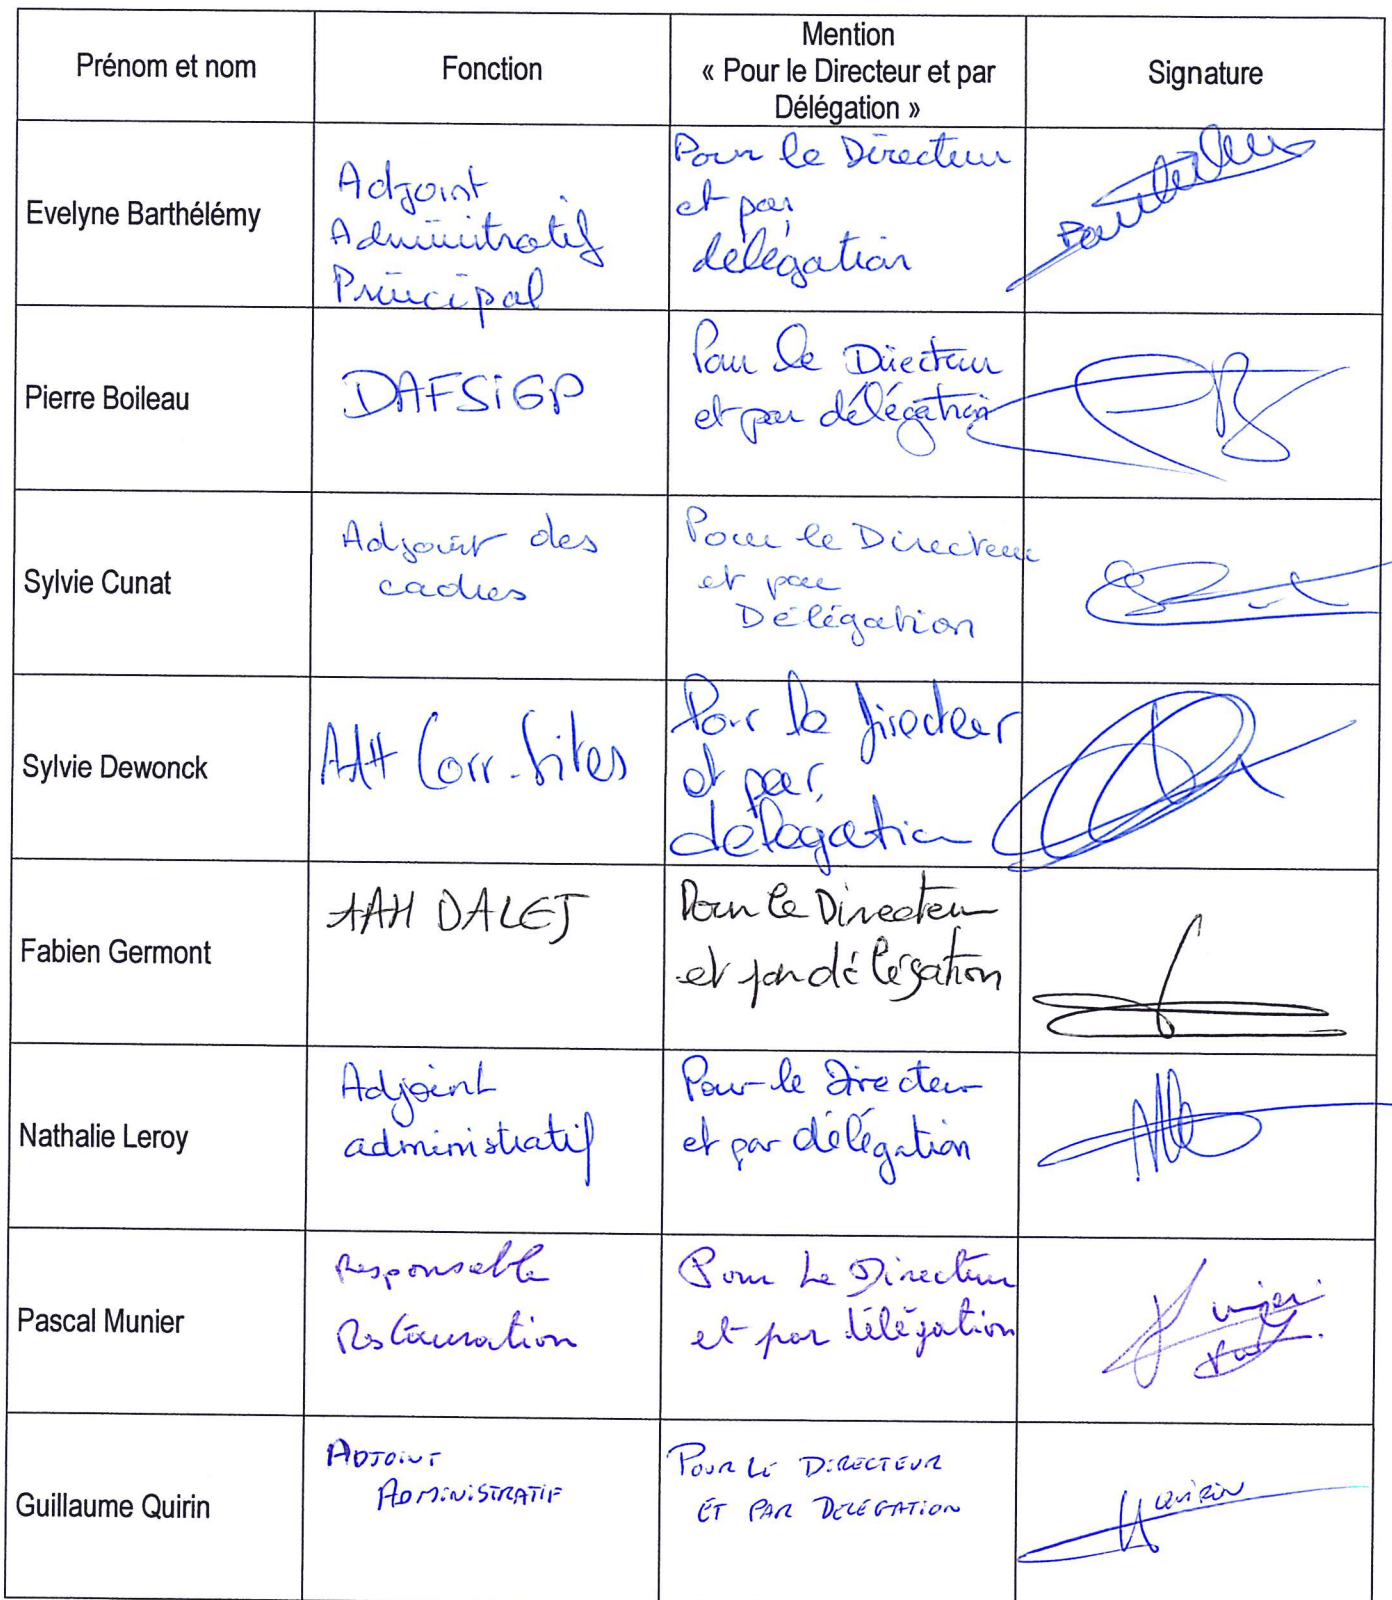 Prénom et nom
Fonction
Mention
« Pour le Directeur et par
Délégation »
Signature
Evelyne Barthélémy
Adjoint
Administratif
Principal
Pour le Directeur
et par
délégation
Pierre Boileau
DAFSiGP
Pour le Directeur
et par délégation
Sylvie Cunat
Adjoint des
cadres
Pour le Directeur
et par
Délégation
Sylvie Dewonck
AAH Corr. Sites
Pour le Directeur
et par
délégation
Fabien Germont
AAH DALEJ
Pour le Directeur
et par délégation
Nathalie Leroy
Adjoint
administratif
Pour le Directeur
et par délégation
Pascal Munier
Responsable
Restauration
Pour Le Directeur
et par délégation
Guillaume Quirin
ADJOINT
ADMINISTRATIF
POUR LE DIRECTEUR
ET PAR DELEGATION
QUIRIN